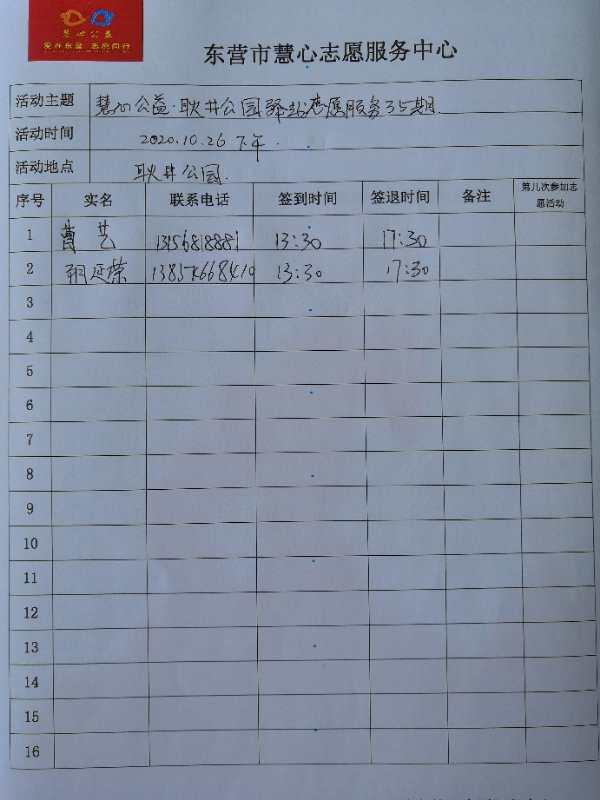 慧心公益
爱在东营 志愿同行
东营市慧心志愿服务中心
活动主题 慧心公益·耿井公园驿站志愿服务35期
活动时间 2020.10.26 下午
活动地点 耿井公园
序号 实名 联系电话 签到时间 签退时间 备注 第几次参加志愿活动
1 艺 13:30 17:30
2 13:30 17:30
3
4
5
6
7
8
9
10
11
12
13
14
15
16